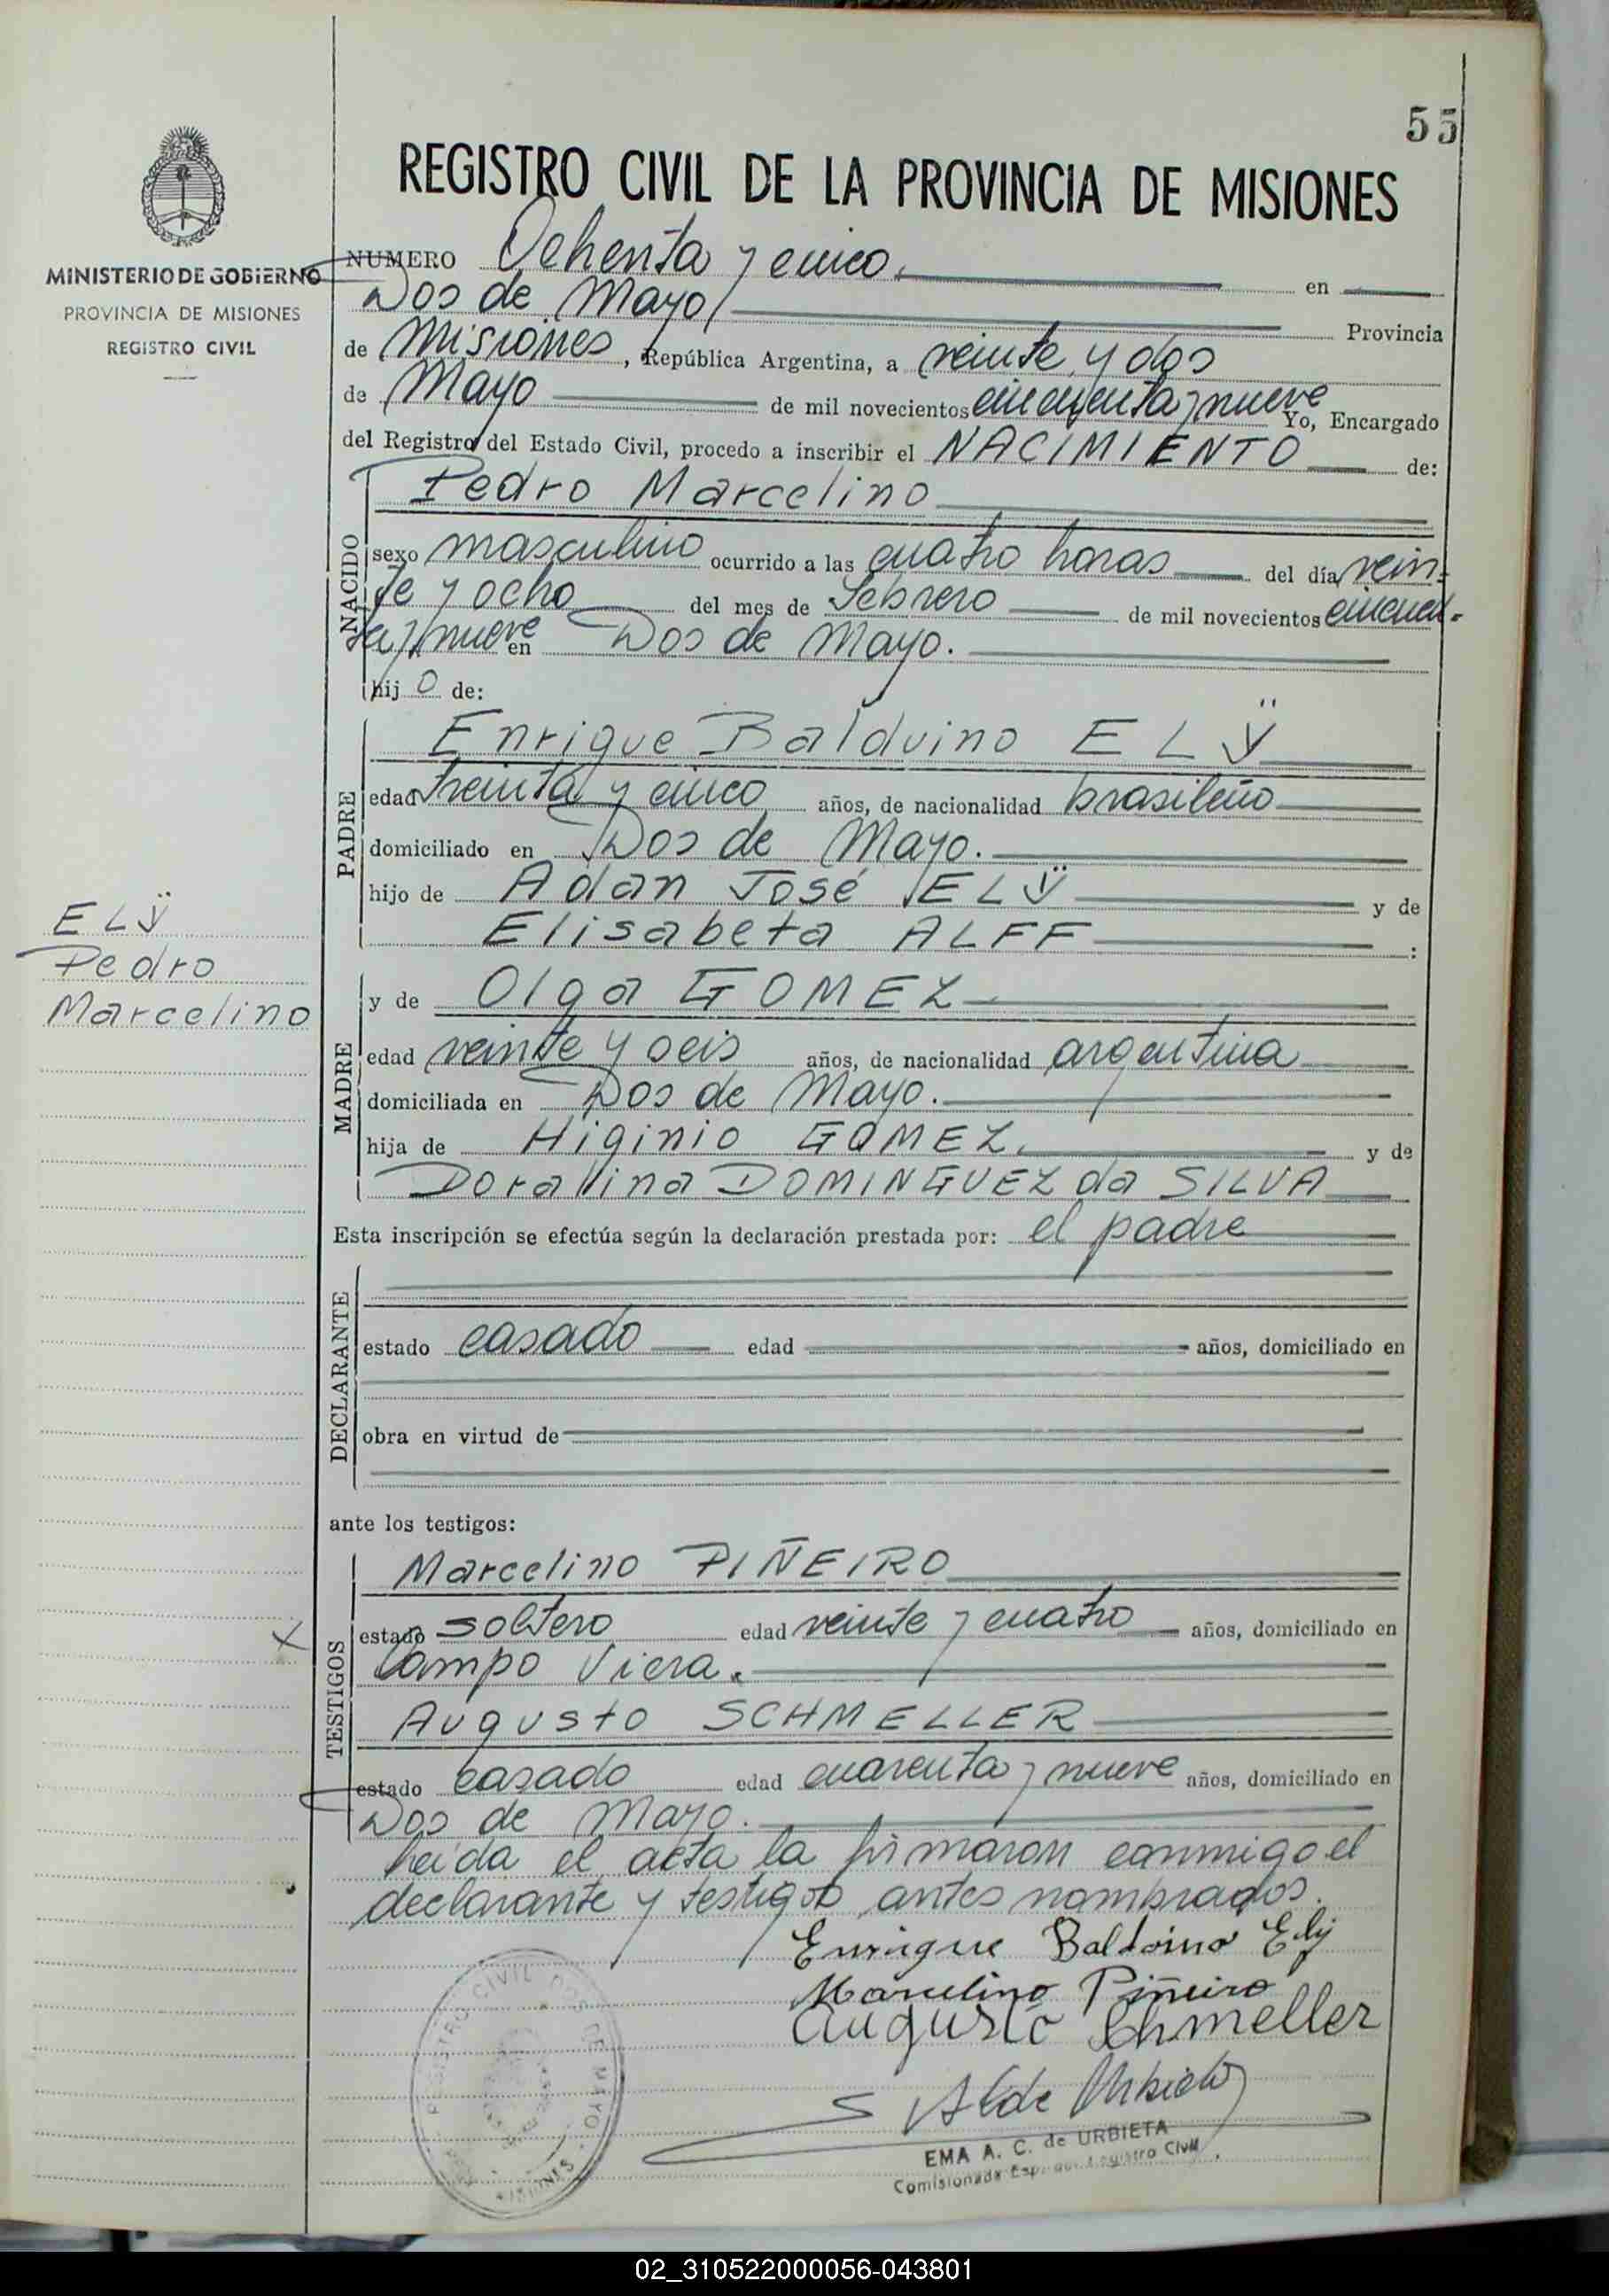 55
REGISTRO CIVIL DE LA PROVINCIA DE MISIONES
MINISTERIO DE GOBIERNO
PROVINCIA DE MISIONES
REGISTRO CIVIL
NUMERO Ochenta y cinco. en
Dos de Mayo Provincia
de Misiones, República Argentina, a veinte y dos
de Mayo de mil novecientos cincuenta y nueve Yo, Encargado
del Registro del Estado Civil, procedo a inscribir el NACIMIENTO de:
NACIDO
Pedro Marcelino
sexo masculino ocurrido a las cuatro horas del día vein-
te y ocho del mes de Febrero de mil novecientos cincuen-
ta y nueve en Dos de Mayo.
hij o de:
PADRE
Enrique Balduino ELŸ
edad treinta y cinco años, de nacionalidad brasileño
domiciliado en Dos de Mayo.
hijo de Adan José ELŸ y de
Elisabeta ALFF :
ELŸ
Pedro
Marcelino
MADRE
y de Olga GOMEZ
edad veinte y seis años, de nacionalidad argentina
domiciliada en Dos de Mayo.
hija de Higinio GOMEZ. y de
Doralina DOMINGUEZ da SILVA
Esta inscripción se efectúa según la declaración prestada por: el padre
DECLARANTE
estado casado edad años, domiciliado en
obra en virtud de
ante los testigos:
TESTIGOS
Marcelino PIÑEIRO
X
estado soltero edad veinte y cuatro años, domiciliado en
Campo Viera.
Augusto SCHMELLER
estado casado edad cuarenta y nueve años, domiciliado en
Dos de Mayo.
Leída el acta la firmaron conmigo el
declarante y testigos antes nombrados.
Enrique Baldoino Ely
Marcelino Piñeiro
Augusto Schmeller
REGISTRO CIVIL DOS DE MAYO
MISIONES
A C de Urbieta
EMA A. C. de URBIETA
Comisionada Registro Civil
02_310522000056-043801